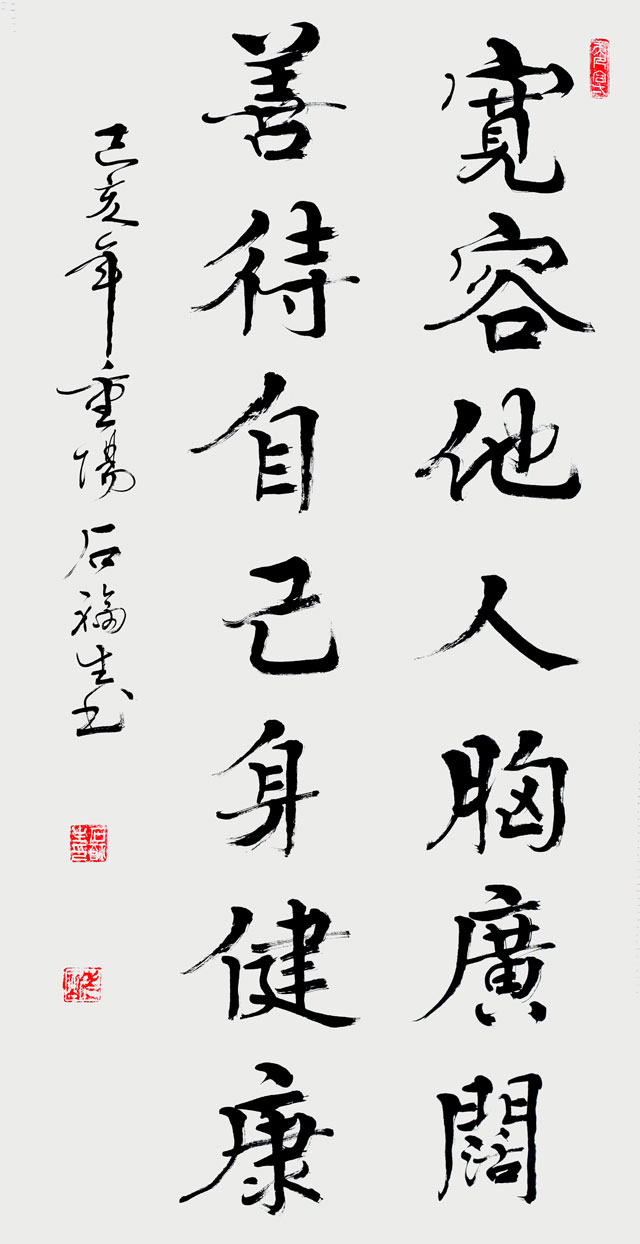 寬容他人胸廣闊
善待自己身健康
己亥年重陽 石福生书